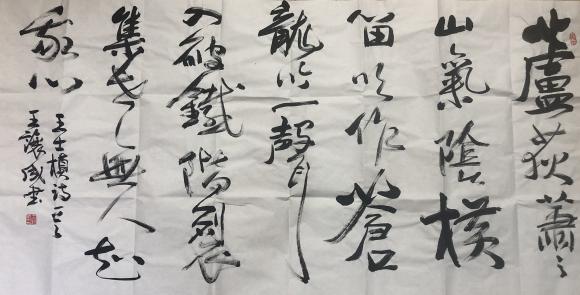 蘆荻蕭々
山氣陰橫
笛吹作蒼
龍吟一聲月
入破鐵階裂
無人知
我心
王士詩
王讓成書